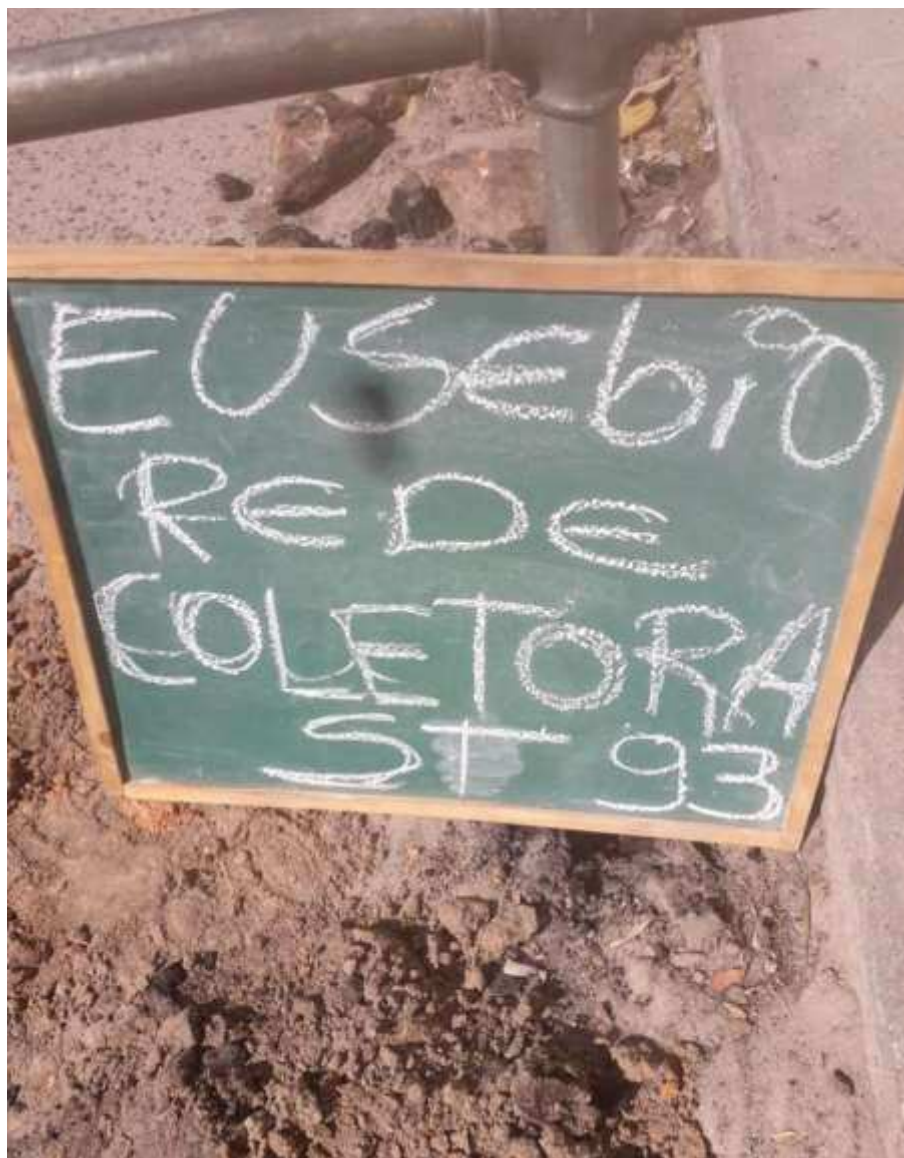 EUSEbiO
REDE
COLETORA
ST 93